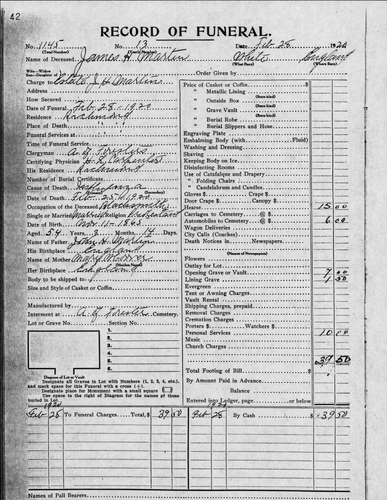 42
RECORD OF FUNERAL.
No. 1145 No. 13 Date Feb 28 1920
(Total Number) (Yearly Number)
Name of Deceased James H. Martin White England
(What Race) (Where Born)
Charge to Estate J. H. Martin Order Given by
Address Price of Casket or Coffin
How Secured " Metallic Lining
Date of Funeral Feb 28 - 1920 " Outside Box
Residence Richmond " Grave Vault
Place of Death " Burial Robe
Funeral Services at " Burial Slippers and Hose
Time of Funeral Service Engraving Plate
Clergyman Embalming Body (with Fluid)
Certifying Physician H. L. Carpenter Washing and Dressing
His Residence Richmond Shaving
Number of Burial Certificate Keeping Body on Ice
Cause of Death Influenza Disinfecting Rooms
Date of Death Feb 25 1920 Use of Catafalque and Drapery
Occupation of the Deceased Blacksmith " Folding Chairs
Single or Married Married Religion " Candelabrum and Candles
Date of Birth Nov 11 - 1865 Gloves $ Crape $
Aged 54 Years 3 Months 14 Days Door Crape $ Canopy $
Name of Father John H. Martin Hearse 15 00
His Birthplace England Carriages to Cemetery @ $
Name of Mother Mary Automobiles to Cemetery @ $ 6 00
Her Birthplace England Wagon Deliveries
Body to be shipped to City Calls (Coaches)
Size and Style of Casket or Coffin Death Notices in Newspapers
(Names of Newspapers)
Flowers
Outlay for Lot
Manufactured by Opening Grave or Vault 7 00
Interment at Cemetery Lining Grave 1 50
Lot or Grave No. Section No. Evergreen
Tent or Awning Charges
Vault Rental
Shipping Charges, prepaid
Removal Charges
Cremation Charges
Porters $ Watchers $
Personal Services 10 00
Music
Church Charges
39 50
Diagram of Lot or Vault
Designate all Graves in Lot with Numbers (1, 2, 3, 4, etc.), and mark space for this Funeral with a cross (+).
Designate place for Monument with a small square
Use space to the right of Diagram for the names of those buried in Lot.
Total Footing of Bill $
By Amount Paid in Advance
Balance
Entered into Ledger, page or below
1920 1920
Feb 28 To Funeral Charges Total, $ 39 50 Feb 28 By Cash $ 39 50
Names of Pall Bearers